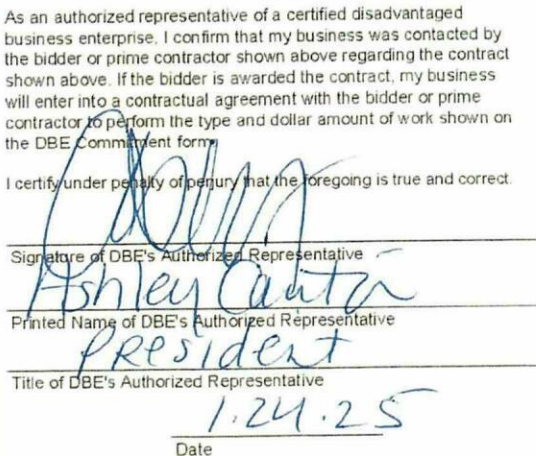 As an authorized representative of a certified disadvantaged
business enterprise, I confirm that my business was contacted by
the bidder or prime contractor shown above regarding the contract
shown above. If the bidder is awarded the contract, my business
will enter into a contractual agreement with the bidder or prime
contractor to perform the type and dollar amount of work shown on
the DBE Commitment form.
I certify under penalty of perjury that the foregoing is true and correct.
Signature of DBE's Authorized Representative
Ashley Cantú
Printed Name of DBE's Authorized Representative
President
Title of DBE's Authorized Representative
1.24.25
Date